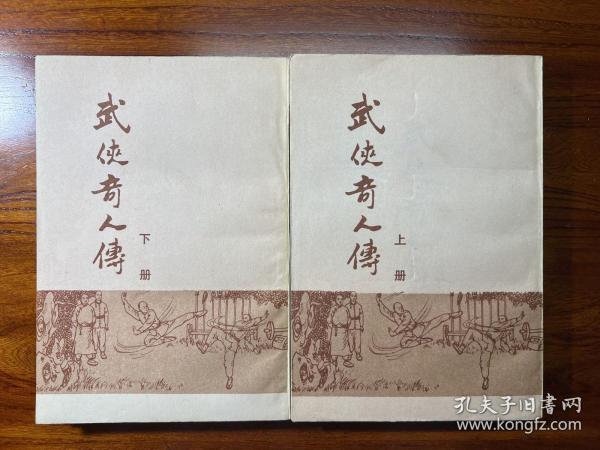 武俠奇人傳
下册
武俠奇人傳
上册
孔夫子旧書网
www.kongfz.com